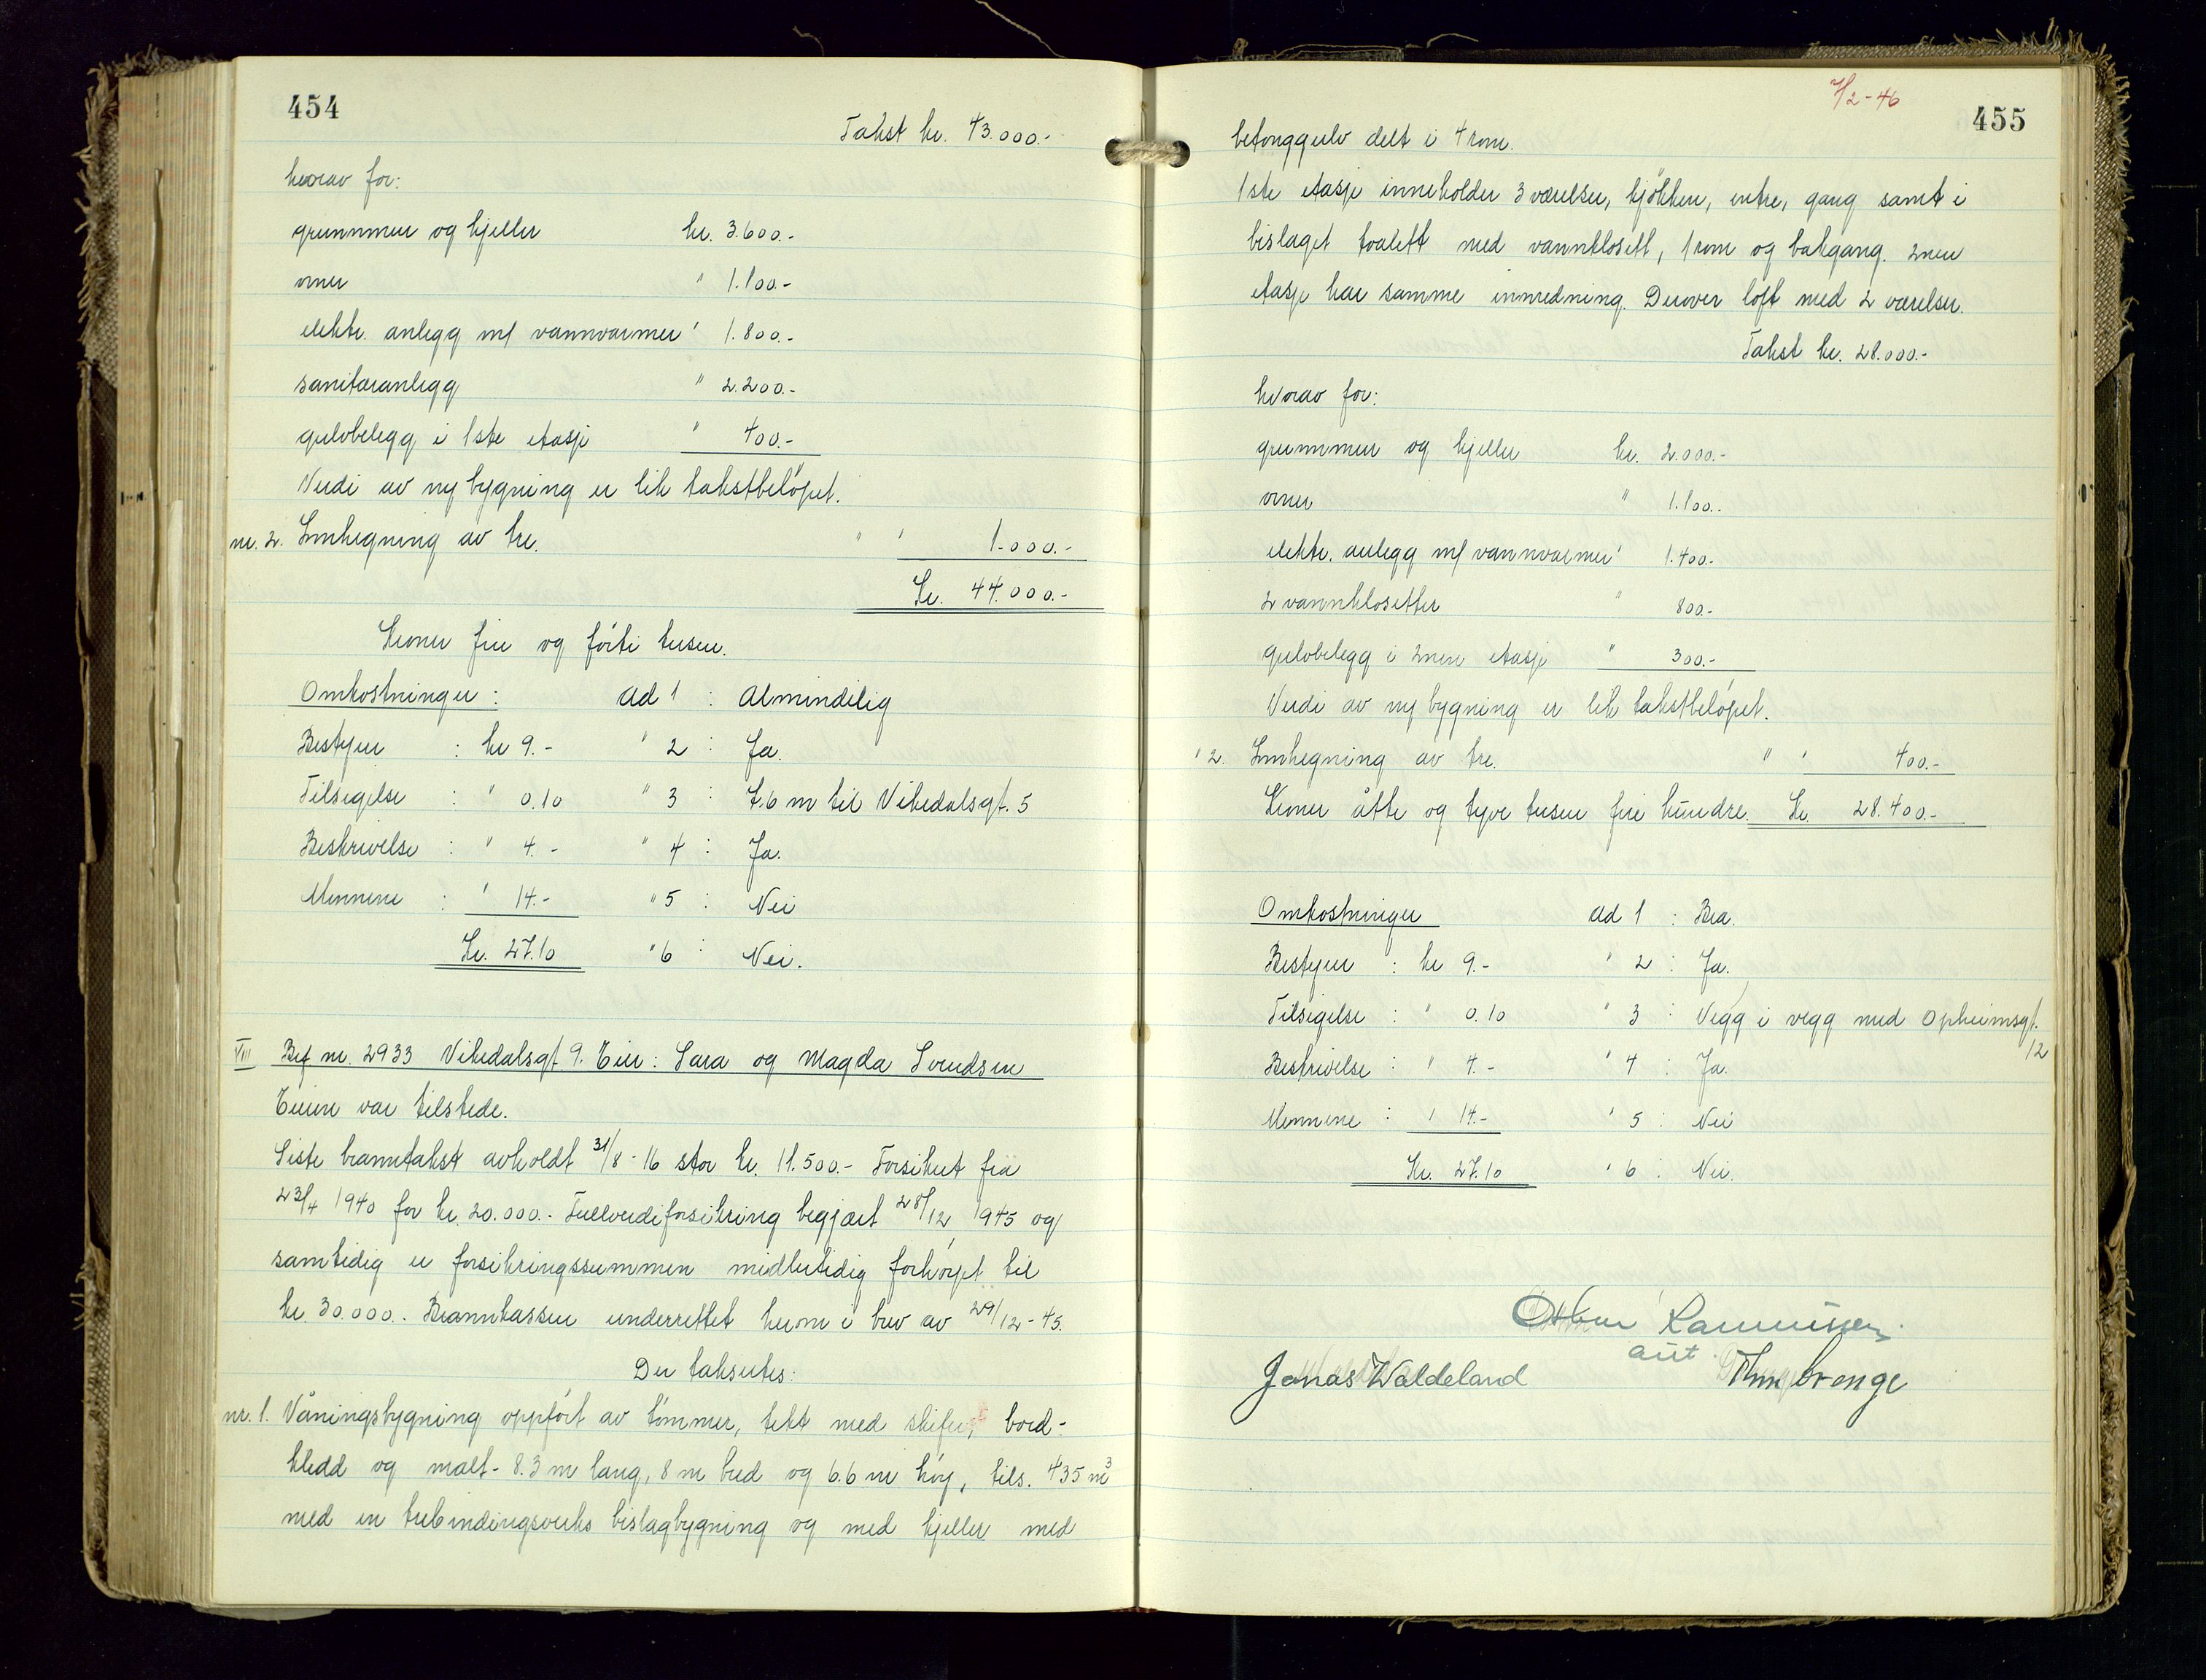 454
Takst kr. 43.000.-
hvorav for:
grunnmur og kjeller kr. 3.600.-
ovner " 1.100.-
elektr. anlegg m/ vannvarmer " 1.800.-
sanitæranlegg " 2.200.-
gulvbelegg i 1ste etasje " 400.-
Verdi av ny bygning er lik takstbeløpet.
nr. 2. Innhegning av tre. " " 1.000.-
Kr. 44.000.-
Kroner fire og førti tusen.
Omkostninger: ad 1 : Almindelig
Bestyrer : kr 9.- " 2 : Ja.
Tilsigelse : " 0.10 " 3 : 7.6 m til Vikedalsgt. 5
Beskrivelse : " 4.- " 4 : Ja.
Mennene : " 14.- " 5 : Nei
Kr. 27.10 " 6 : Nei.
VIII Bef. nr. 2933 Vikedalsgt 9. Eier: Sara og Magda Svendsen
Eieren var tilstede.
Siste branntakst avholdt 31/8-16 stor kr. 11.500.- Forsikret fra
23/4 1940 for kr. 20.000.- Fullverdiforsikring begjært 28/12 1945 og
samtidig er forsikringssummen midlertidig forhøyet til
kr. 30.000.- Brannkassen underrettet herom i brev av 29/12-45.
Der takseres:
nr. 1. Våningsbygning oppført av tømmer, tekt med skifer, bord-
kledd og malt - 8.3 m lang, 8 m bred og 6.6 m høy, tils. 435 m³
med en trebindingsverks bislagbygning og med kjeller med
7/2-46
455
betonggulv delt i 4 rom.
1ste etasje inneholder 3 værelser, kjøkken, entre, gang samt i
bislaget toalett med vannklosett, 1 rom og bakgang. 2nen
etasje har samme innredning. Derover loft med 2 værelser.
Takst kr. 28.000.-
hvorav for:
grunnmur og kjeller kr. 2.000.-
ovner " 1.100.-
elektr. anlegg m/ vannvarmer " 1.400.-
2 vannklosetter " 800.-
gulvbelegg i 2nen etasje " 300.-
Verdi av ny bygning er lik takstbeløpet.
" 2. Innhegning av tre. " " 400.-
Kroner åtte og tyve tusen fire hundre. Kr. 28.400.-
Omkostninger ad 1 : Bra.
Bestyrer : kr 9.- " 2 : Ja.
Tilsigelse : " 0.10 " 3 : Vegg i vegg med Opheimsgt.
12
Beskrivelse : " 4.- " 4 : Ja.
Mennene : " 14.- " 5 : Nei
Kr. 27.10 " 6 : Nei.
Rasmussen
Jonas Waldeland